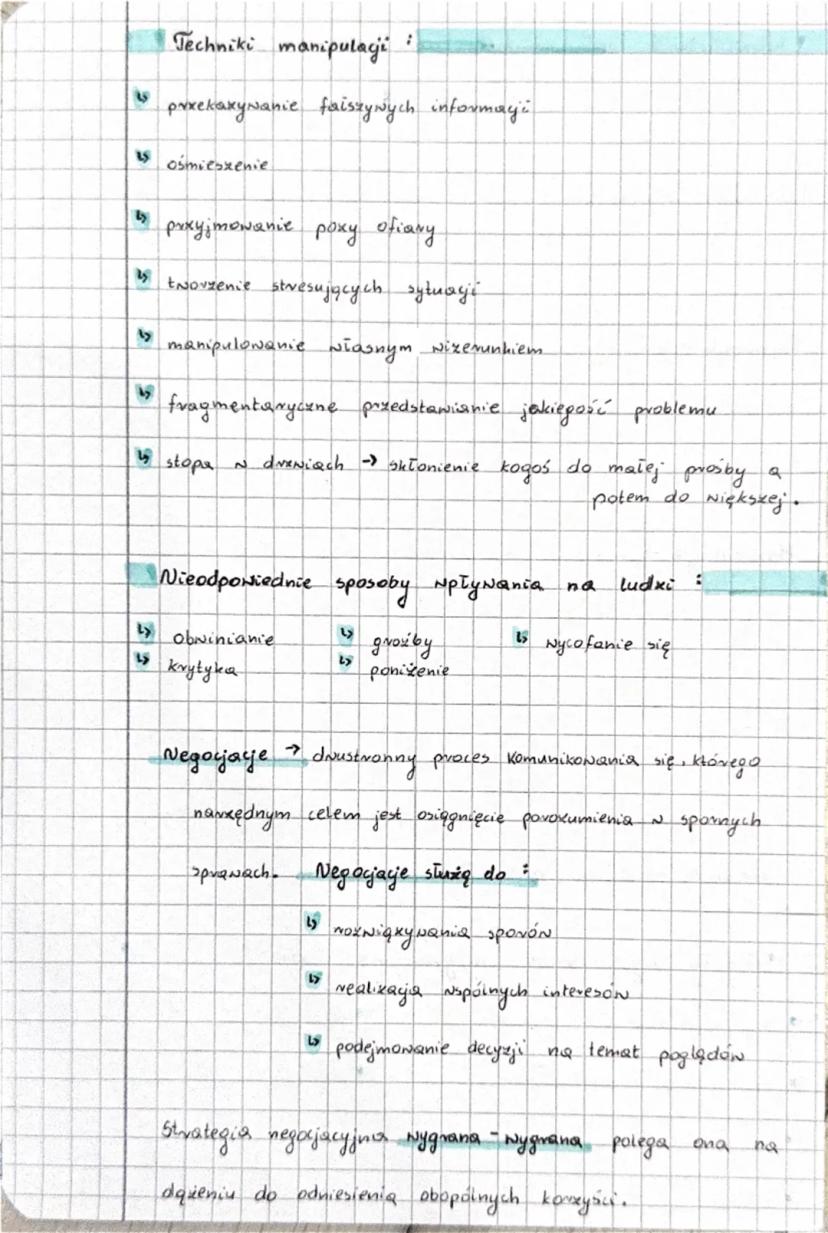 Techniki manipulacji :
↳ przekazywanie fałszywych informacji
↳ ośmieszenie
↳ przyjmowanie pozy ofiary
↳ tworzenie stresujących sytuacji
↳ manipulowanie własnym wizerunkiem
↳ fragmentaryczne przedstawianie jakiegość problemu
↳ stopa w drzwiach → skłonienie kogoś do małej prośby a
potem do większej.
Nieodpowiednie sposoby wpływania na ludzi :
↳ obwinianie ↳ groźby ↳ wycofanie się
↳ krytyka ↳ poniżenie
Negocjacje → dwustronny proces komunikowania się, którego
narzędnym celem jest osiągnięcie porozumienia w spornych
sprawach. Negocjacje służą do :
↳ rozwiązywania sporów
↳ realizacja wspólnych interesów
↳ podejmowanie decyzji na temat poglądów
Strategia negocjacyjna wygrana - wygrana polega ona na
dążeniu do odniesienia obopólnych korzyści.